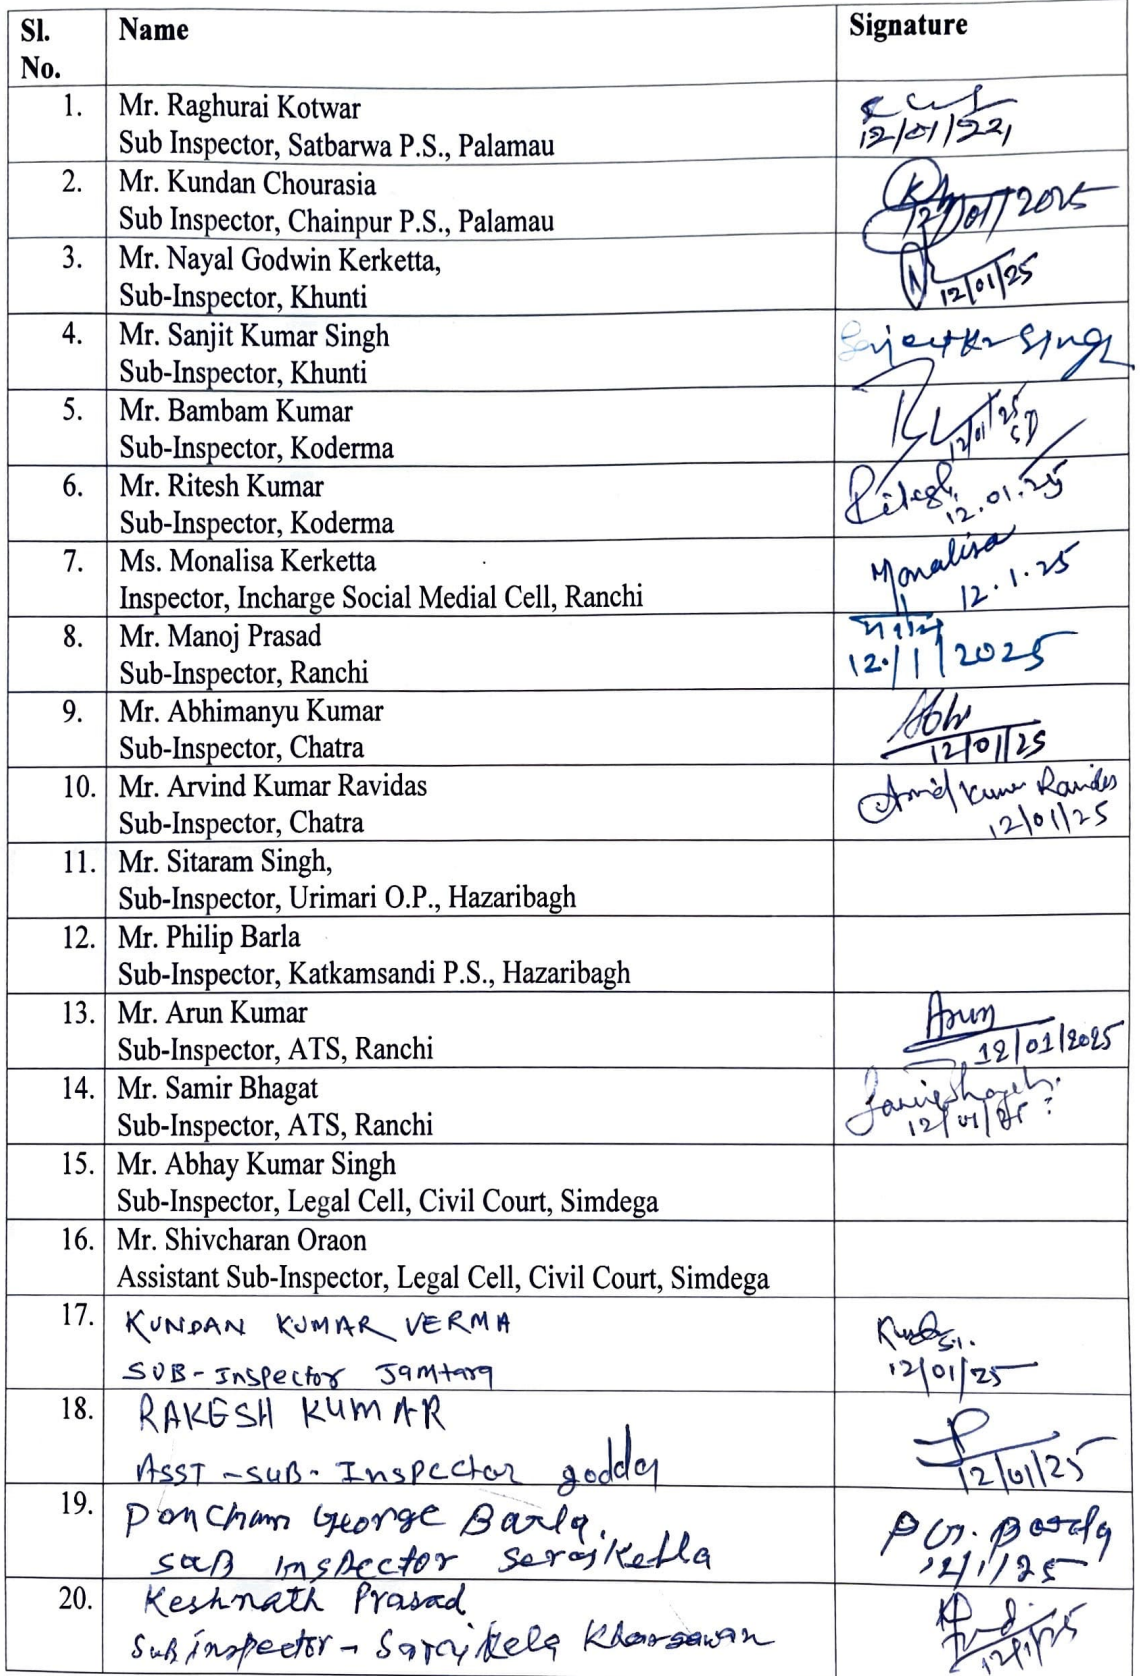 Sl. No. Name Signature
1. Mr. Raghurai Kotwar
Sub Inspector, Satbarwa P.S., Palamau
12/01/22
2. Mr. Kundan Chourasia
Sub Inspector, Chainpur P.S., Palamau
12/01/2025
3. Mr. Nayal Godwin Kerketta,
Sub-Inspector, Khunti
12/01/25
4. Mr. Sanjit Kumar Singh
Sub-Inspector, Khunti
Singh
5. Mr. Bambam Kumar
Sub-Inspector, Koderma
12/01/25
6. Mr. Ritesh Kumar
Sub-Inspector, Koderma
Ritesh
12.01.25
7. Ms. Monalisa Kerketta
Inspector, Incharge Social Medial Cell, Ranchi
Monalisa
12.1.25
8. Mr. Manoj Prasad
Sub-Inspector, Ranchi
12/1/2025
9. Mr. Abhimanyu Kumar
Sub-Inspector, Chatra
Abhi
12/01/25
10. Mr. Arvind Kumar Ravidas
Sub-Inspector, Chatra
Arvind Kumar Ravidas
12/01/25
11. Mr. Sitaram Singh,
Sub-Inspector, Urimari O.P., Hazaribagh
12. Mr. Philip Barla
Sub-Inspector, Katkamsandi P.S., Hazaribagh
13. Mr. Arun Kumar
Sub-Inspector, ATS, Ranchi
Arun
12/01/2025
14. Mr. Samir Bhagat
Sub-Inspector, ATS, Ranchi
12/01/25
15. Mr. Abhay Kumar Singh
Sub-Inspector, Legal Cell, Civil Court, Simdega
16. Mr. Shivcharan Oraon
Assistant Sub-Inspector, Legal Cell, Civil Court, Simdega
17. KUNDAN KUMAR VERMA
SUB-Inspector Jamtara
12/01/25
18. RAKESH KUMAR
ASST-SUB-Inspector godda
12/01/25
19. Pancham George Barla.
SUB Inspector Seraikella
P G. Barla
12/1/25
20. Keshnath Prasad
Sub inspector - Saraikela Kharsawan
12/1/25